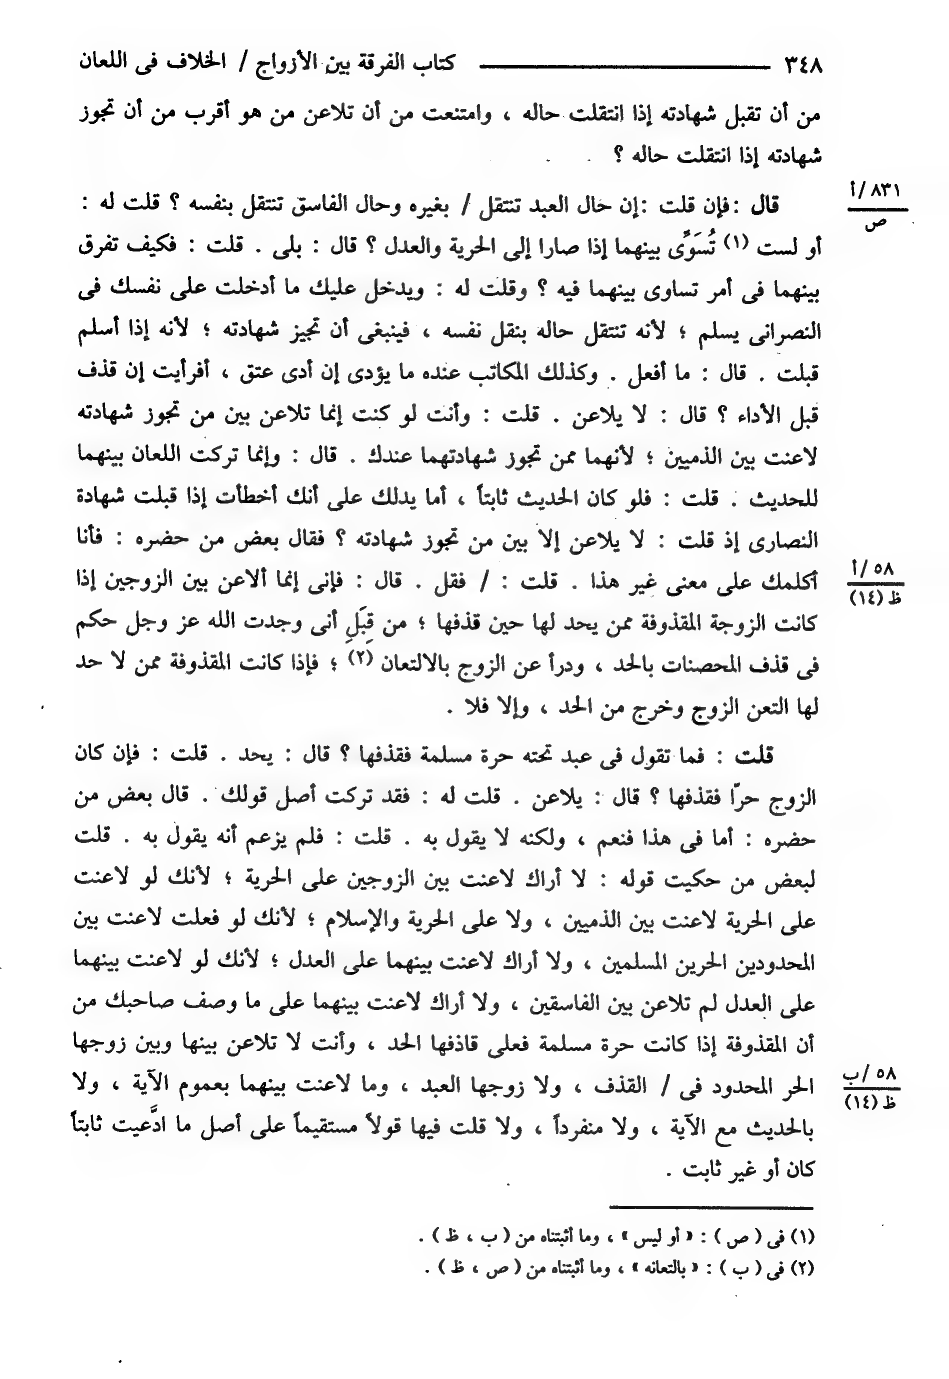 ٣٤٨ ــــــــــــــــــــ كتاب الفرقة بين الأزواج / الخلاف فى اللعان
من أن تقبل شهادته إذا انتقلت حاله ، وامتنعت من أن تلاعن من هو أقرب من أن تجوز
شهادته إذا انتقلت حاله ؟
٨٣١/أ
ص
قال : فإن قلت : إن حال العبد تنتقل / بغيره وحال الفاسق تنتقل بنفسه ؟ قلت له :
أو لست (١) تُسَوِّى بينهما إذا صارا إلى الحرية والعدل ؟ قال : بلى . قلت : فكيف تفرق
بينهما فى أمر تساوى بينهما فيه ؟ وقلت له : ويدخل عليك ما أدخلت على نفسك فى
النصرانى يسلم ؛ لأنه تنتقل حاله بنقل نفسه ، فينبغى أن تجيز شهادته ؛ لأنه إذا أسلم
قبلت . قال : ما أفعل . وكذلك المكاتب عنده ما يؤدى إن أدى عتق ، أفرأيت إن قذف
قبل الأداء ؟ قال : لا يلاعن . قلت : وأنت لو كنت إنما تلاعن بين من تجوز شهادته
لاعنت بين الذميين ؛ لأنهما ممن تجوز شهادتهما عندك . قال : وإنما تركت اللعان بينهما
للحديث . قلت : فلو كان الحديث ثابتاً ، أما يدلك على أنك أخطأت إذا قبلت شهادة
النصارى إذ قلت : لا يلاعن إلا بين من تجوز شهادته ؟ فقال بعض من حضره : فأنا
٥٨/أ
ظ (١٤)
أكلمك على معنى غير هذا . قلت : / فقل . قال : فإنى إنما ألاعن بين الزوجين إذا
كانت الزوجة المقذوفة ممن يحد لها حين قذفها ؛ من قِبَلِ أنى وجدت الله عز وجل حكم
فى قذف المحصنات بالحد ، ودرأ عن الزوج بالالتعان (٢) ؛ فإذا كانت المقذوفة ممن لا حد
لها التعن الزوج وخرج من الحد ، وإلا فلا .
قلت : فما تقول فى عبد تحته حرة مسلمة فقذفها ؟ قال : يحد . قلت : فإن كان
الزوج حرًّا فقذفها ؟ قال : يلاعن . قلت له : فقد تركت أصل قولك . قال بعض من
حضره : أما فى هذا فنعم ، ولكنه لا يقول به . قلت : فلم يزعم أنه يقول به . قلت
لبعض من حكيت قوله : لا أراك لاعنت بين الزوجين على الحرية ؛ لأنك لو لاعنت
على الحرية لاعنت بين الذميين ، ولا على الحرية والإسلام ؛ لأنك لو فعلت لاعنت بين
المحدودين الحرين المسلمين ، ولا أراك لاعنت بينهما على العدل ؛ لأنك لو لاعنت بينهما
على العدل لم تلاعن بين الفاسقين ، ولا أراك لاعنت بينهما على ما وصف صاحبك من
أن المقذوفة إذا كانت حرة مسلمة فعلى قاذفها الحد ، وأنت لا تلاعن بينها وبين زوجها
٥٨/ب
ظ (١٤)
الحر المحدود فى / القذف ، ولا زوجها العبد ، وما لاعنت بينهما بعموم الآية ، ولا
بالحديث مع الآية ، ولا منفرداً ، ولا قلت فيها قولاً مستقيماً على أصل ما ادَّعيت ثابتاً
كان أو غير ثابت .
(١) فى ( ص ) : « أو ليس » ، وما أثبتناه من ( ب ، ظ ) .
(٢) فى ( ب ) : « بالتعانه » ، وما أثبتناه من ( ص ، ظ ) .